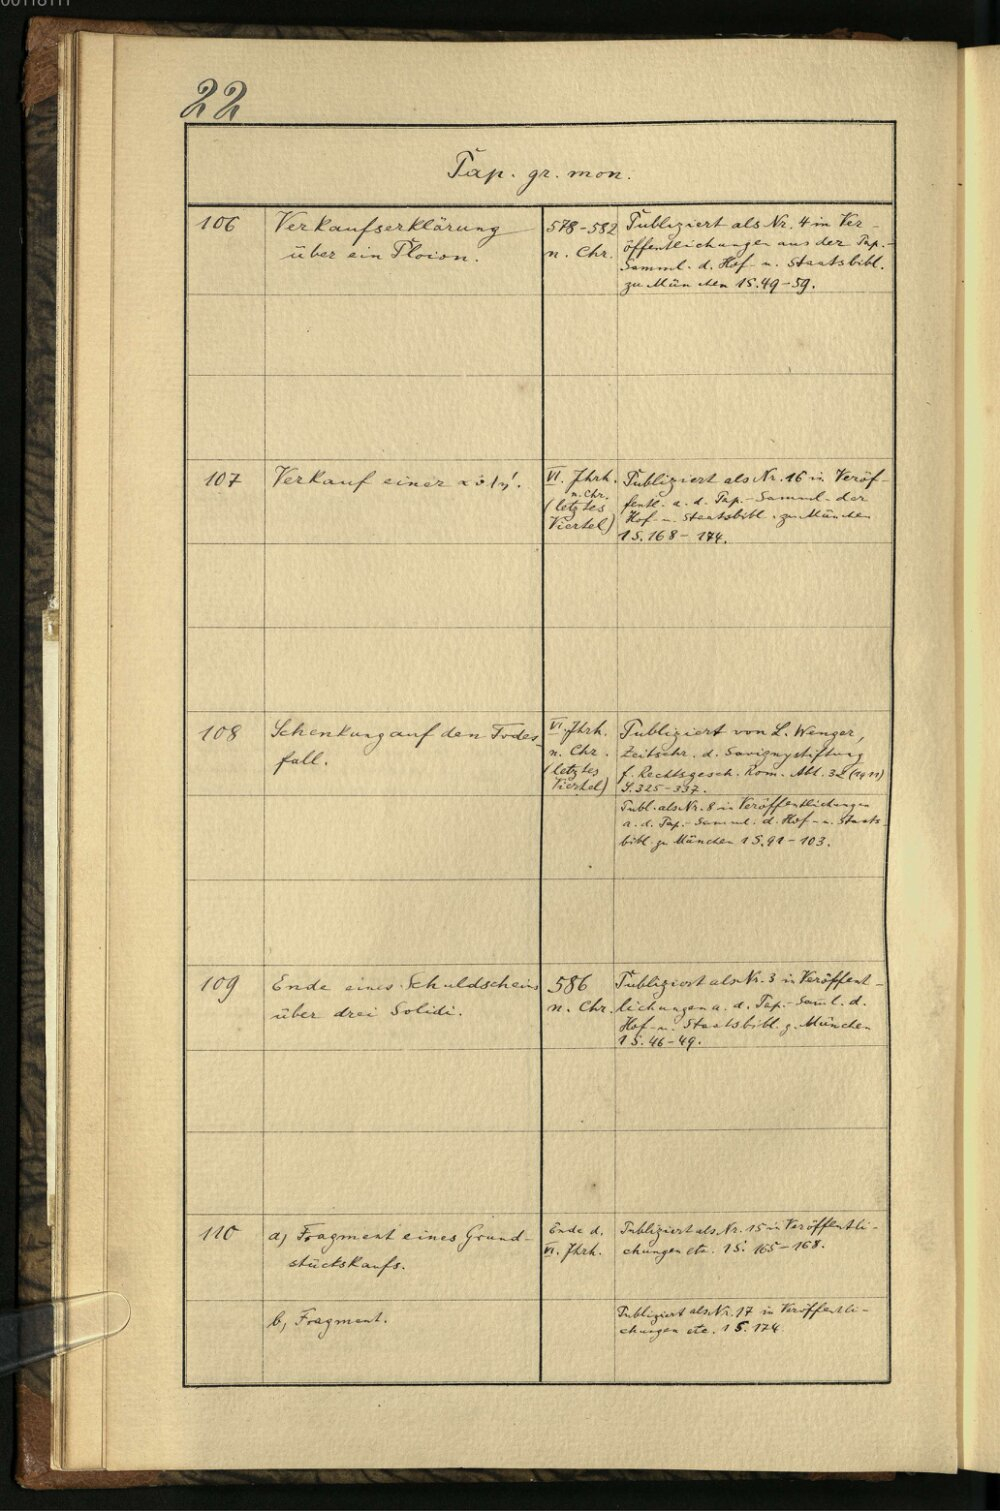 22
Pap. gr. mon.
106
Verkaufserklärung
über ein Ploion.
578-582
n. Chr.
Publiziert als Nr. 4 in Ver-
öffentlichungen aus der Pap.-
Samml. d. Hof- u. Staatsbibl.
zu München 1 S. 49-59.
107
Verkauf einer
VI. Jhrh.
n. Chr.
(letztes
Viertel)
Publiziert als Nr. 16 in Veröf-
fentl. a. d. Pap.-Samml. der
Hof- u. Staatsbibl. zu München
1 S. 168-174.
108
Schenkung auf den Todes-
fall.
VI. Jhrh.
n. Chr.
(letztes
Viertel)
Publiziert von L. Wenger,
Zeitschr. d. Savignystiftung
f. Rechtsgesch. Rom. Abt. 32 (1911)
S. 325-337.
Publ. als Nr. 8 in Veröffentlichungen
a. d. Pap.-Samml. d. Hof- u. Staats-
bibl. zu München 1 S. 91-103.
109
Ende eines Schuldscheins
über drei Solidi.
586
n. Chr.
Publiziert als Nr. 3 in Veröffent-
lichungen a. d. Pap.-Saml. d.
Hof- u. Staatsbibl. z. München
1 S. 46-49.
110
a) Fragment eines Grund-
stückskaufs.
Ende d.
VI. Jhrh.
Publiziert als Nr. 15 in Veröffentli-
chungen etc. 1 S. 165-168.
b) Fragment.
Publiziert als Nr. 17 in Veröffentli-
chungen etc. 1 S. 174.